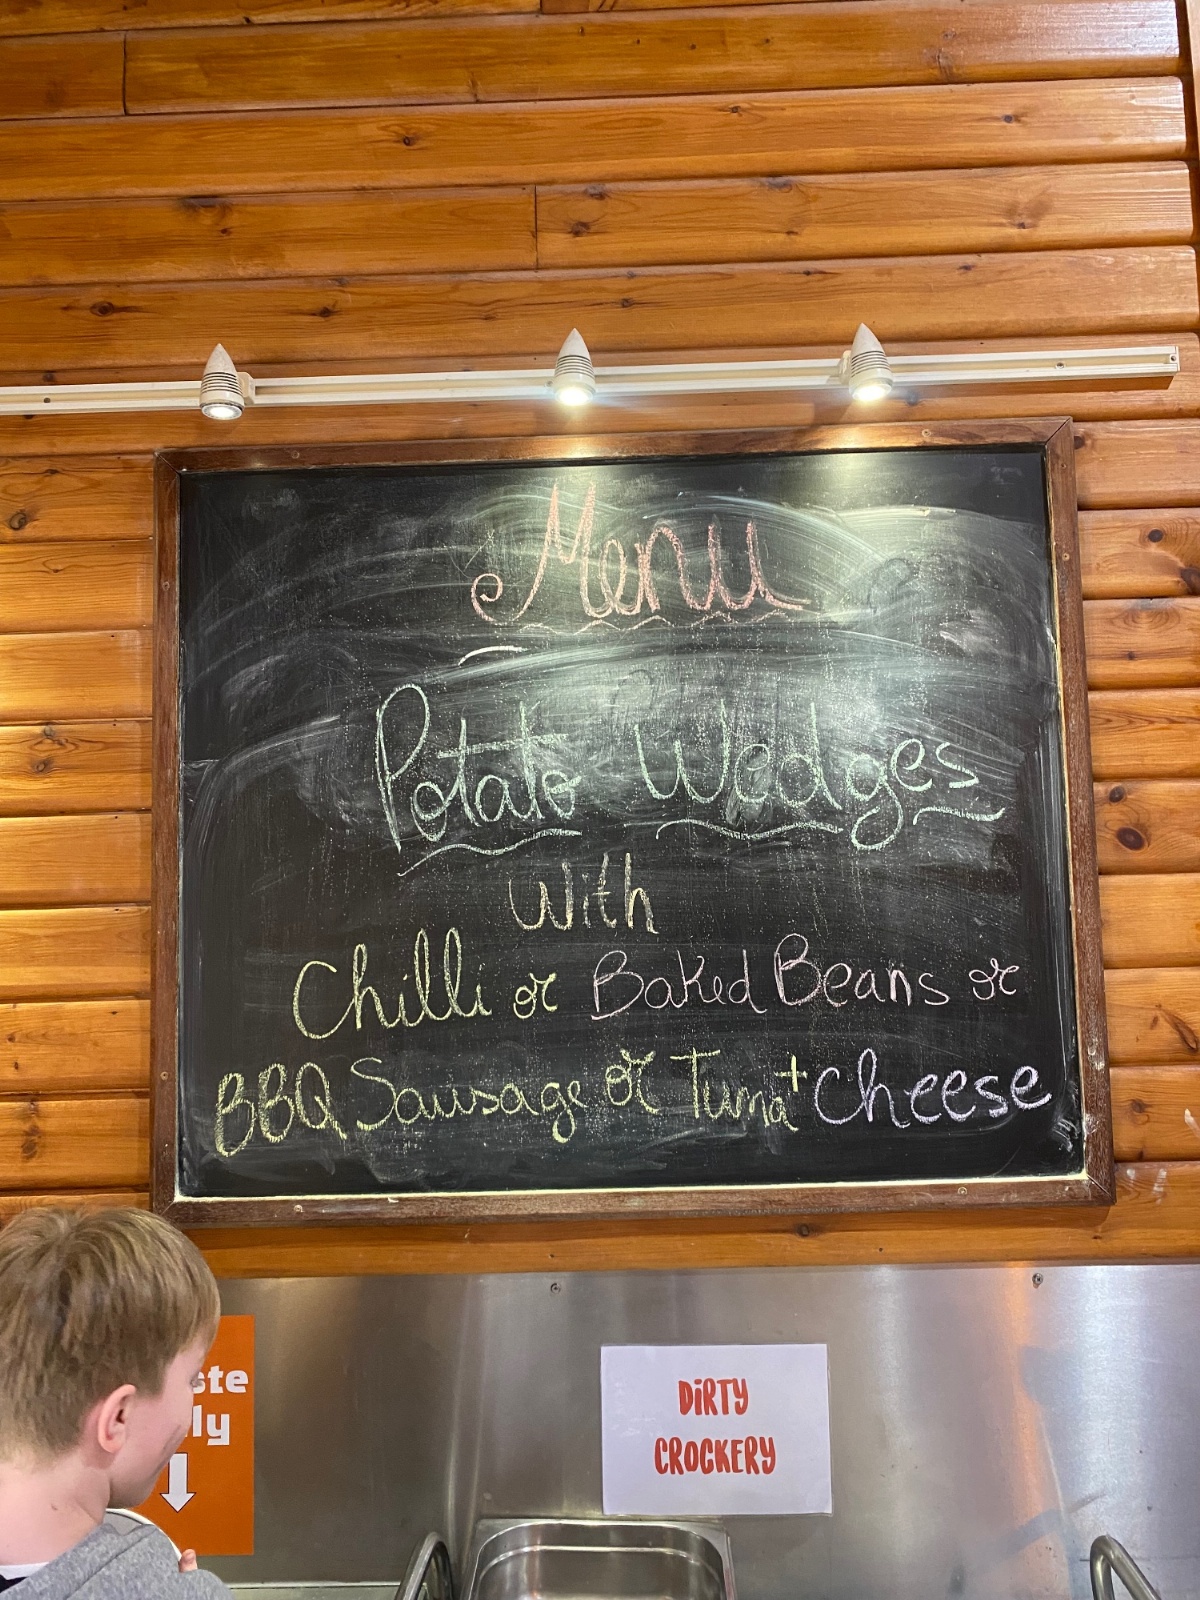 Menu
Potato Wedges
With
Chilli or Baked Beans or
BBQ Sausage or Tuna + Cheese
DiRTY
CROCKERY